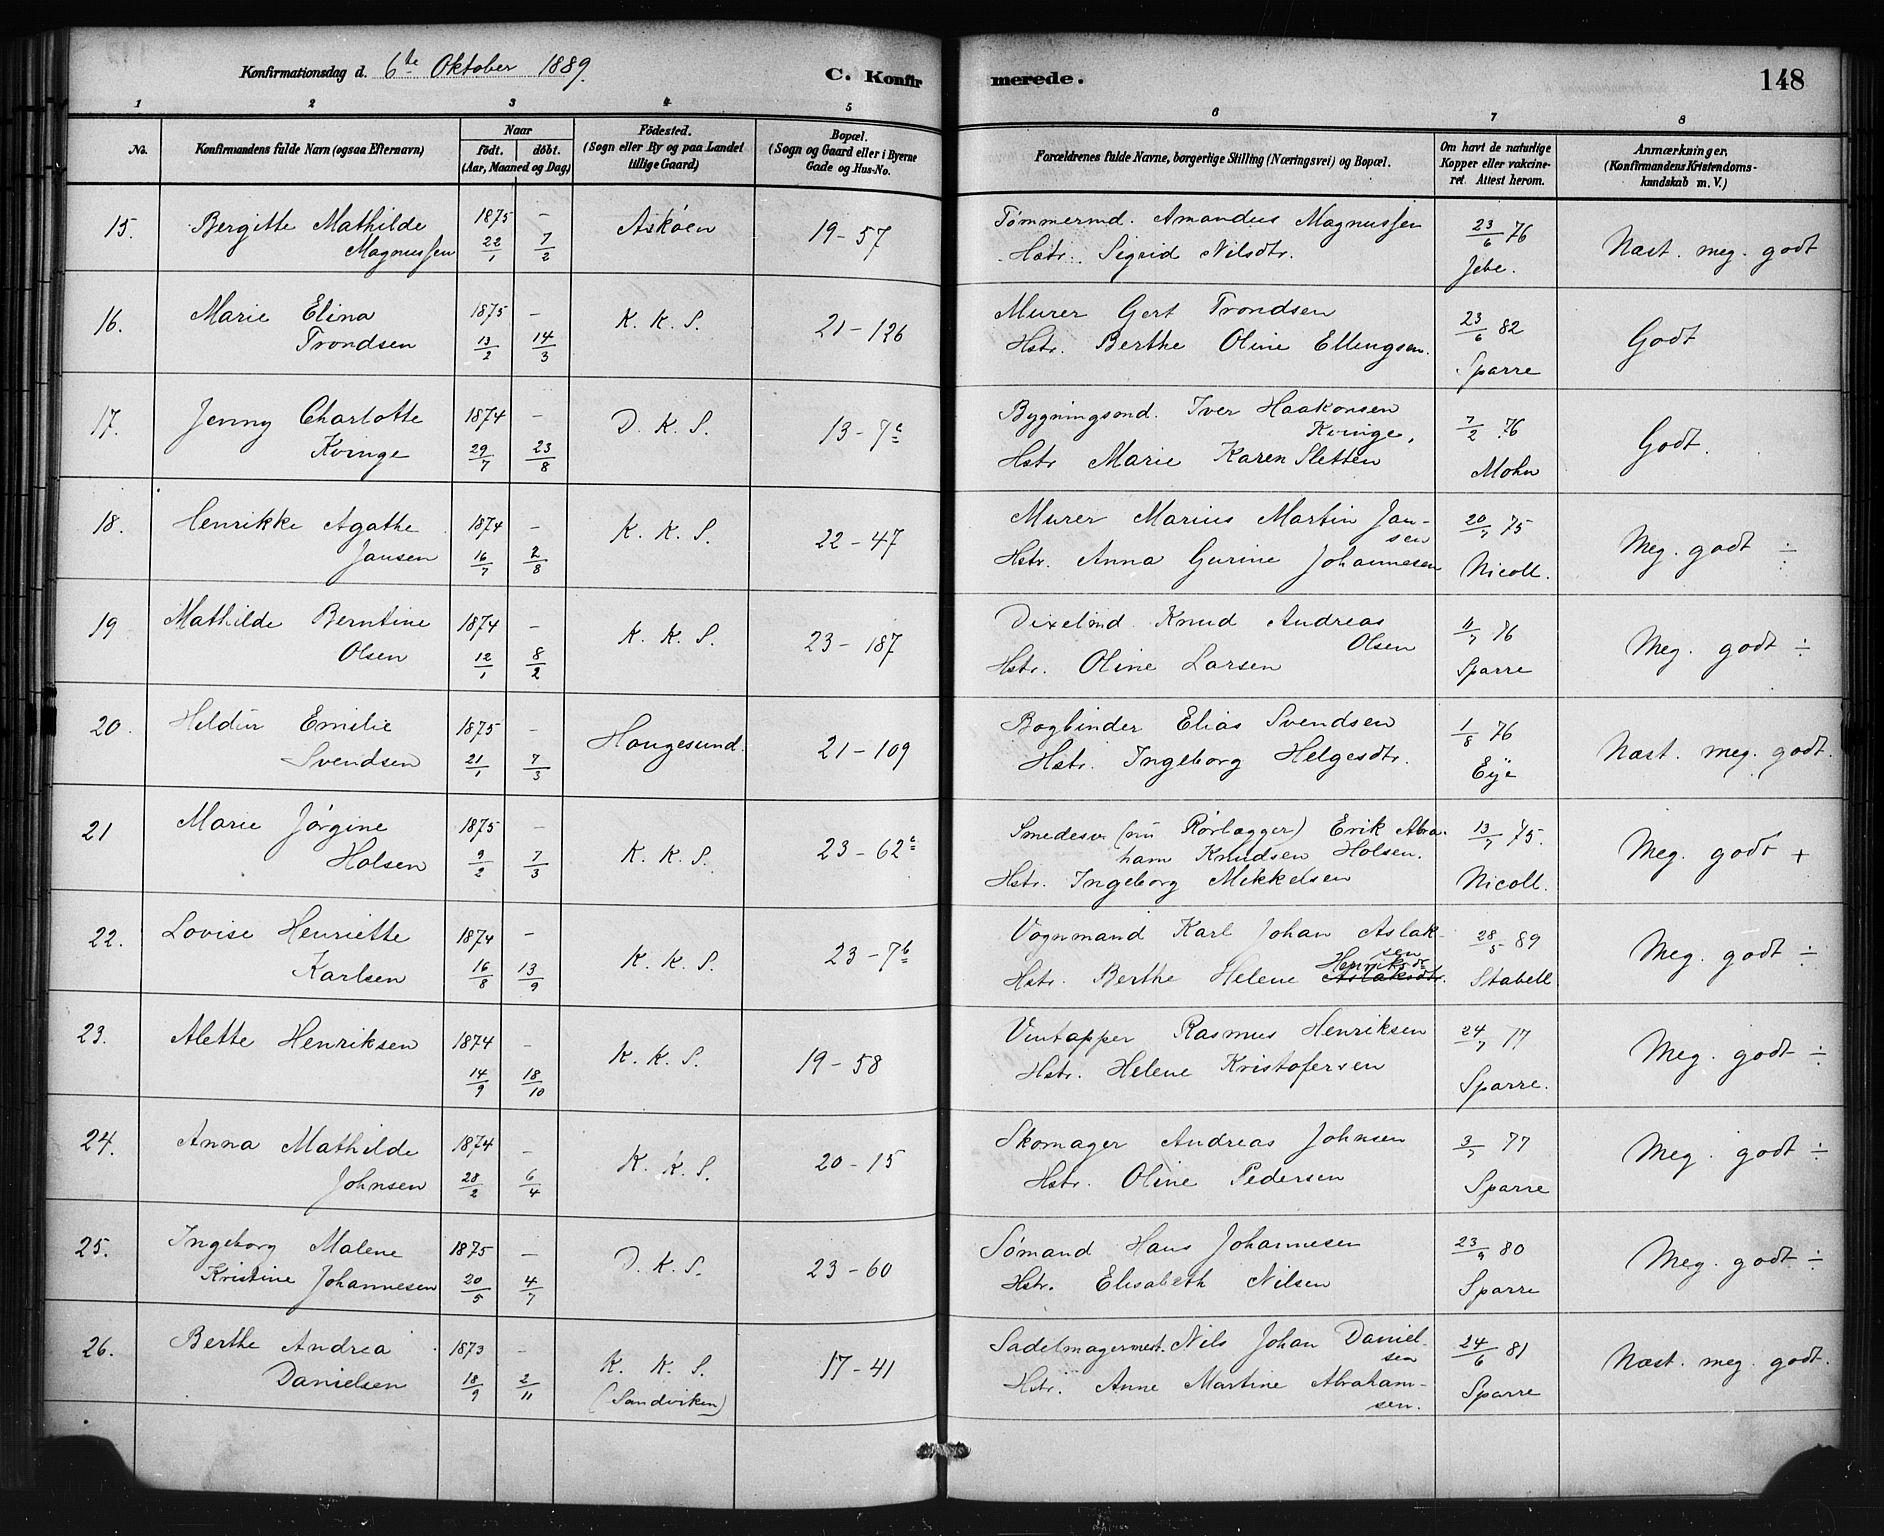 Konfirmationsdag d. 6te Oktober 1889. C. Konfirmerede. 148
1 2 3 4 5 6 7 8
No. Konfirmandens fulde Navn (ogsaa Efternavn) Naar födt. döbt. (Aar, Maaned og Dag) Födested. (Sogn eller By og paa Landet tillige Gaard) Bopæl. (Sogn og Gaard eller i Byerne Gade og Hus-No. Forældrenes fulde Navne, borgerlige Stilling (Næringsvei) og Bopæl. Om havt de naturlige Kopper eller vakcineret. Attest herom. Anmærkninger, (Konfirmandens Kristendomskundskab m. V.)
15. Bergitte Mathilde 1875 – Askøen 19 – 57 Tømmermd. Amandus Magnussen 23/6 76 Næst. meg. godt
Magnussen 22/1 7/2 Hstr. Sigrid Nilsdtr. Jebe.
16. Marie Elina 1875 – K. K. S. 21 – 126 Murer Gert Trondsen 23/6 82 Godt
Trondsen 13/2 14/3 Hstr. Berthe Oline Ellingsen. Sparre
17. Jenny Charlotte 1874 – D. K. S. 13 – 7c Bygningsmd. Iver Haakonsen 7/2 76 Godt.
Kvinge 29/7 23/8 Kvinge,
Hstr Marie Karen Sletten Mohn
18. Henrikke Agathe 1874 – K. K. S. 22 – 47 Murer Marius Martin Jan- 20/7 75 Meg. godt ÷
Jansen 16/7 2/8 sen
Hstr. Anna Gurine Johannesen Nicoll.
19 Mathilde Berntine 1874 – K. K. S. 23 – 187 Dixelmd Knud Andreas 11/7 76 Meg. godt ÷
Olsen 12/1 8/2 Olsen
Hstr. Oline Larsen Sparre
20. Hildur Emilie 1875 – Haugesund. 21 – 109 Bogbinder Elias Svendsen 1/8 76 Næst. meg. godt.
Svendsen 21/1 7/3 Hstr. Ingeborg Helgesdtr. Eye
21 Marie Jørgine 1875 – K. K. S. 23 – 62c Smedesv. (nu Rørlægger) Erik Abra- 13/7 75. Meg. godt +
Holsen 9/2 7/3 ham Knudsen Holsen.
Hstr. Ingeborg Mikkelsen Nicoll.
22. Lovise Henriette 1874 – K. K. S. 23 – 7b Vognmand Karl Johan Aslak- 28/5 89 Meg. godt ÷
Karlsen 16/8 13/9 sen
Henriksdr
Hstr. Berthe Helene Aslaksdtr. Stabell
23. Alette Henriksen 1874 – K. K. S. 19 – 58 Vintapper Rasmus Henriksen 24/7 77 Meg. godt ÷
14/9 18/10 Hstr. Helene Kristofersen Sparre.
24. Anna Mathilde 1874 – K. K. S. 20 – 15 Skomager Andreas Johnsen 3/7 77 Meg. godt ÷
Johnsen 28/2 6/4 Hstr. Oline Pedersen Sparre
25. Ingeborg Malene 1875 – D. K. S. 23 – 60 Sømand Hans Johannesen 23/9 80 Meg. godt ÷
Kristine Johannesen 20/5 4/7 Hstr. Elisabeth Nilsen Sparre
26. Berthe Andrea 1873 – K. K. S. 17 – 41 Sadelmagermest. Nils Johan Daniel- 24/6 81 Næst. meg. godt.
Danielsen 18/9 2/11 (Sandviken) sen
Hstr. Anne Martine Abraham- Sparre
sen.